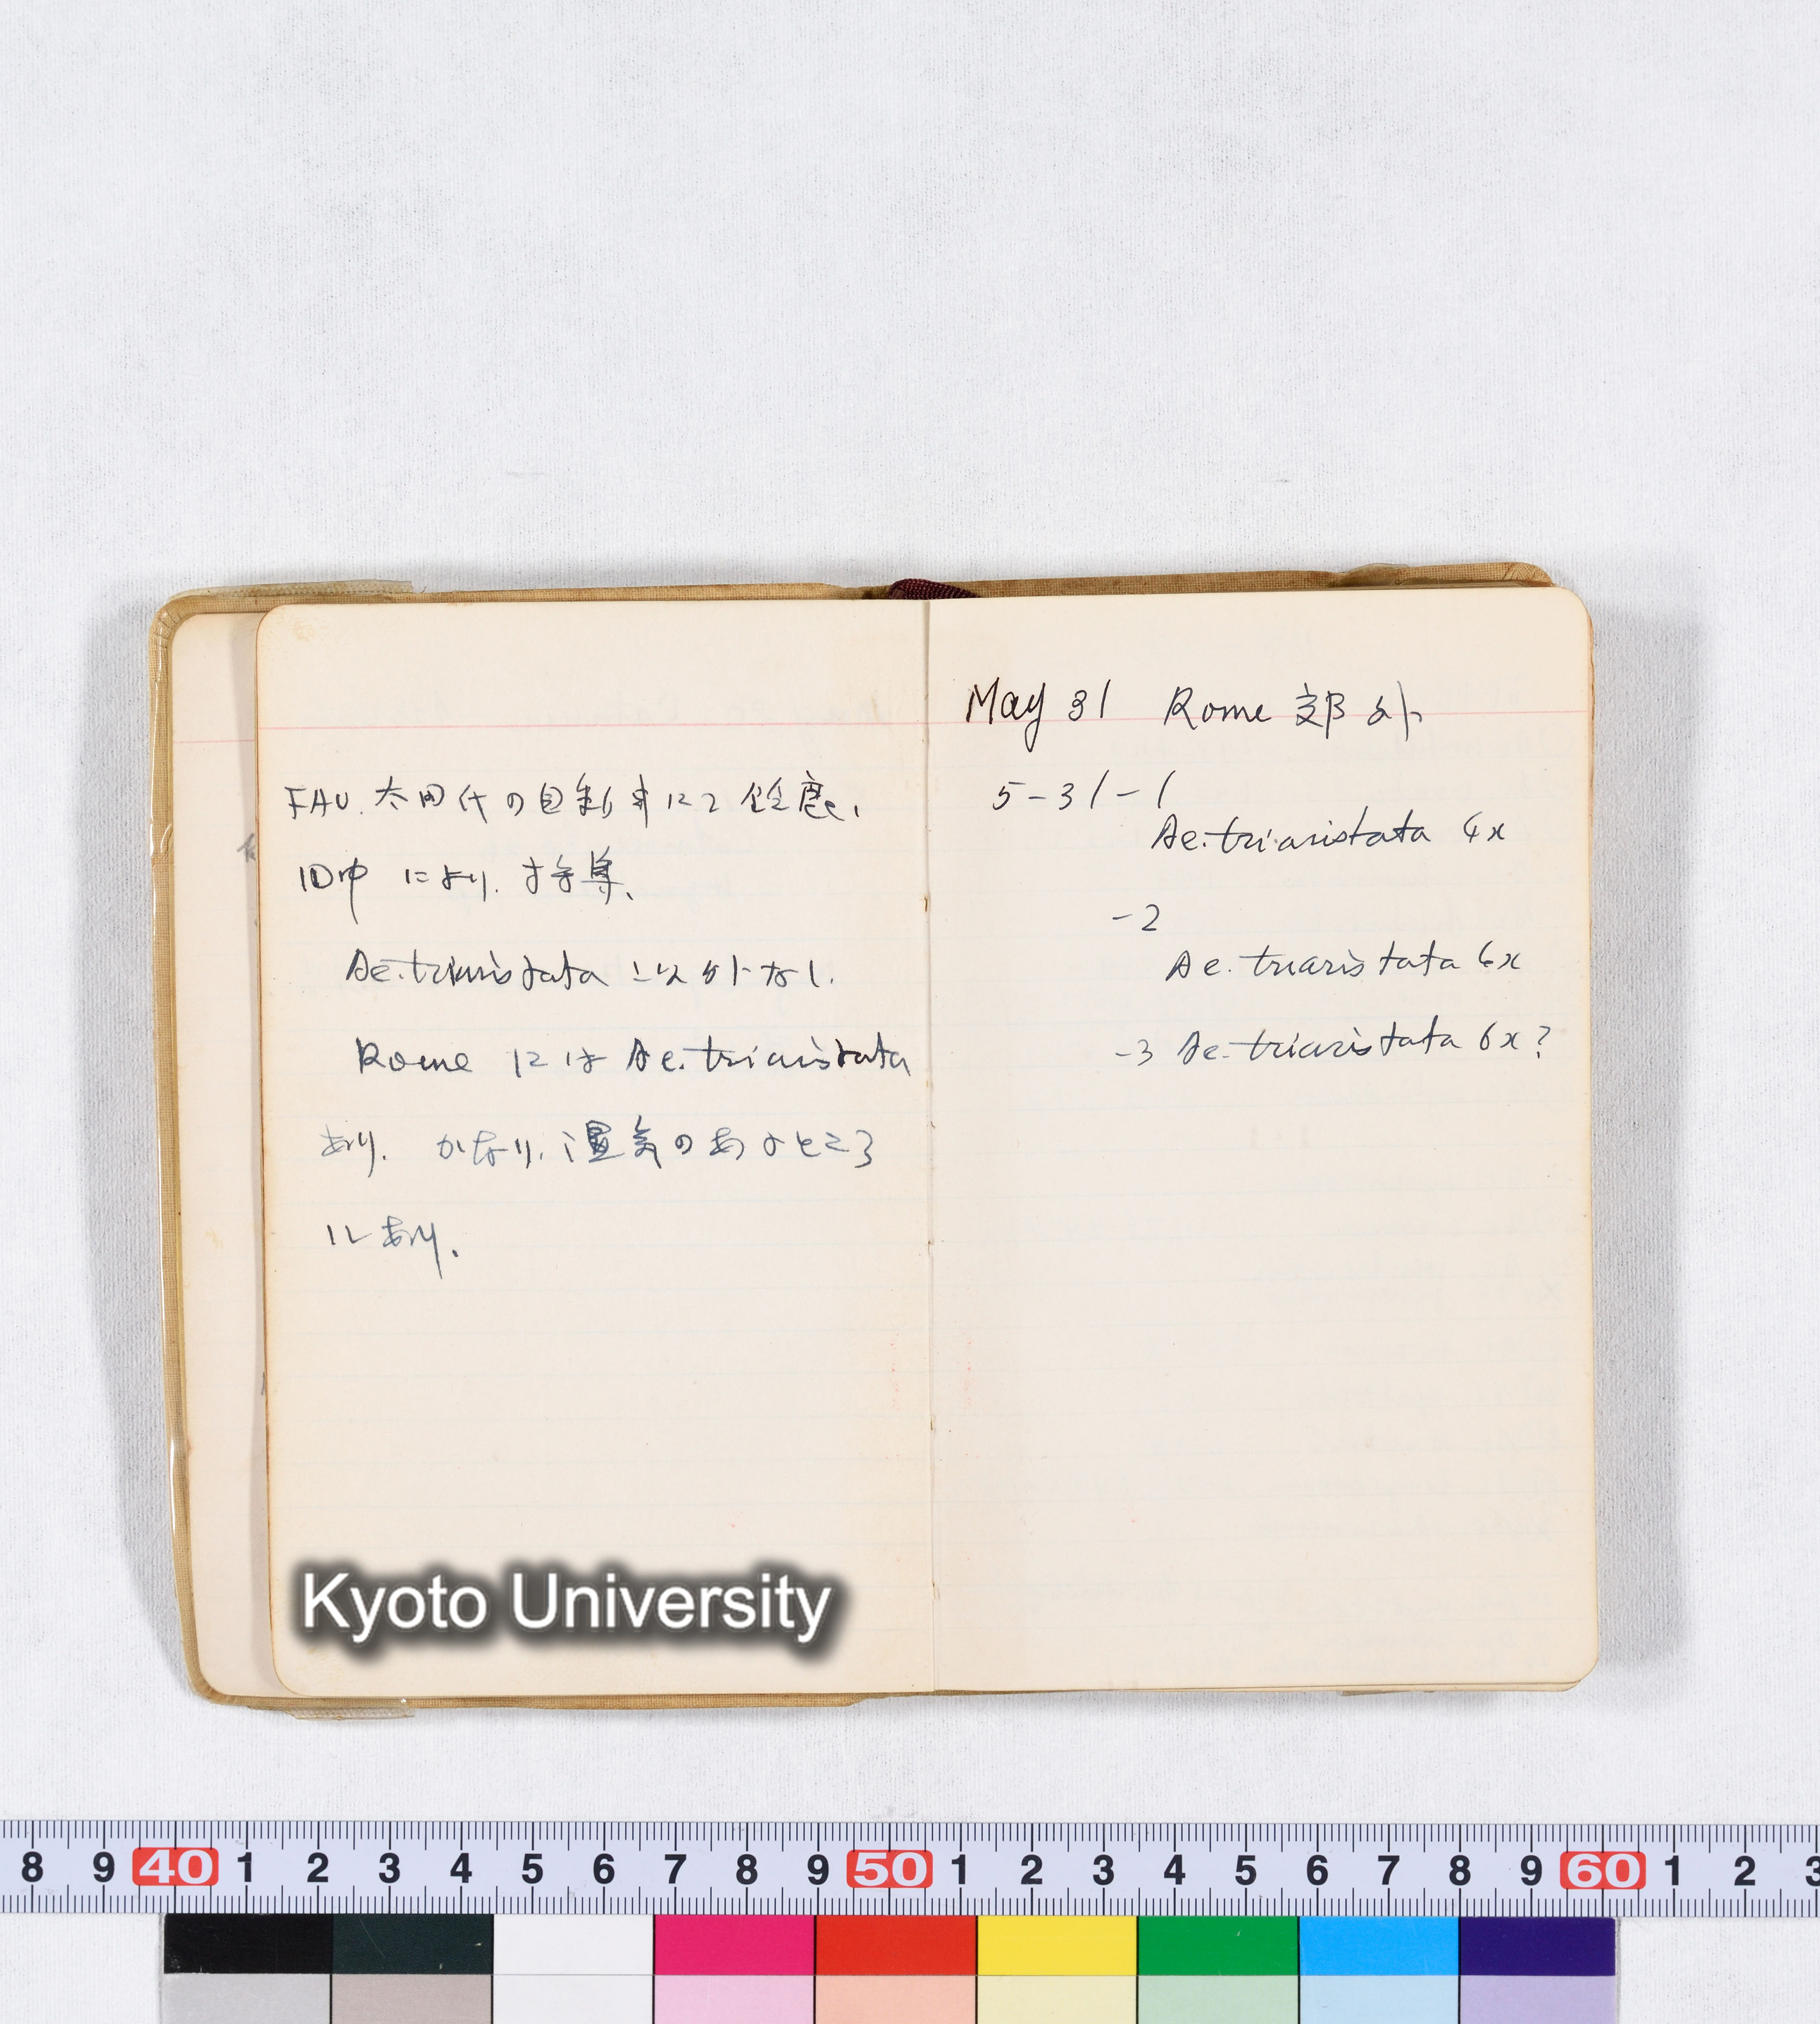 FAO. 太田代の自動車にて 鈴鹿、
田中 により. 採集、
Ae. triaristata 以外なし.
Rome には Ae. triaristata
あり. かなり. 湿気のあるところ
にあり.
May 31 Rome 郊外
5-31-1
Ae. triaristata 4x
-2
Ae. triaristata 6x
-3 Ae. triaristata 6x?
Kyoto University
8 9 40 1 2 3 4 5 6 7 8 9 50 1 2 3 4 5 6 7 8 9 60 1 2 3